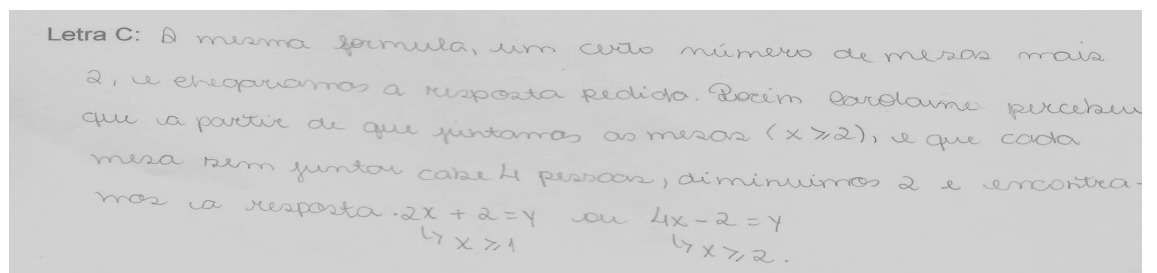 Letra C: A mesma formula, um certo número de mesas mais
2, e chegariamos a resposta pedida. Porém Carolaine percebeu
que a partir de que juntamos as mesas (x ⩾ 2), e que cada
mesa sem juntar cabe 4 pessoas, diminuimos 2 e encontra-
mos a resposta. 2x + 2 = y ou 4x - 2 = y
↳ x ⩾ 1 ↳ x ⩾ 2.